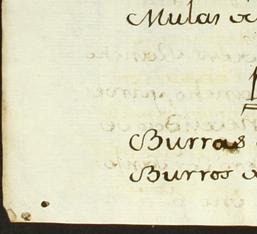 Mulas de
Burras
Burros